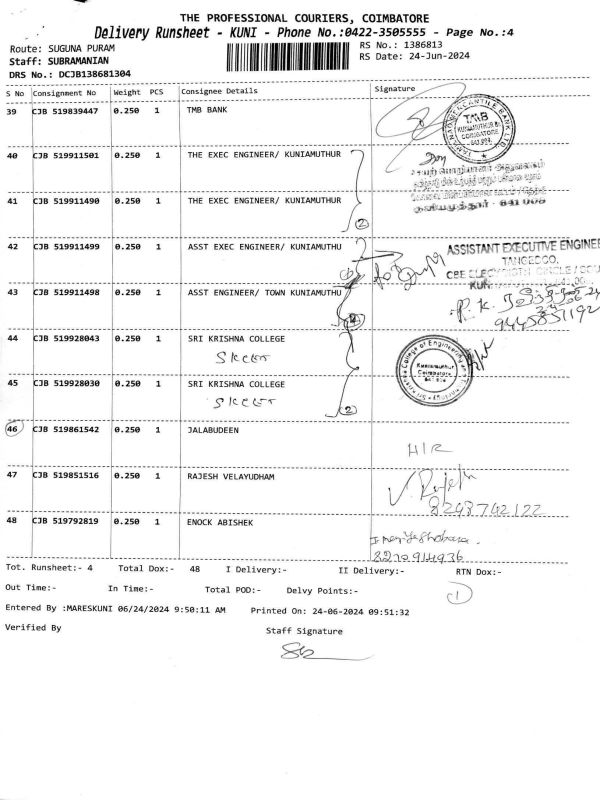 THE PROFESSIONAL COURIERS, COIMBATORE
Delivery Runsheet - KUNI - Phone No.:0422-3505555 - Page No.:4
Route: SUGUNA PURAM
RS No.: 1386813
Staff: SUBRAMANIAN
RS Date: 24-Jun-2024
DRS No.: DCJB138681304
S No Consignment No Weight PCS Consignee Details Signature
39 CJB 519839447 0.250 1 TMB BANK
TMB
KUNIAMUTHUR BR
COIMBATORE
641 008
40 CJB 519911501 0.250 1 THE EXEC ENGINEER/ KUNIAMUTHUR
குனியமுத்தூர் - 641 008
41 CJB 519911490 0.250 1 THE EXEC ENGINEER/ KUNIAMUTHUR
2
42 CJB 519911499 0.250 1 ASST EXEC ENGINEER/ KUNIAMUTHU
ASSISTANT EXECUTIVE ENGINEE
TANGEDCO.
43 CJB 519911498 0.250 1 ASST ENGINEER/ TOWN KUNIAMUTHU
9445851192
44 CJB 519928043 0.250 1 SRI KRISHNA COLLEGE
SKCET
Sri Krishna College of Engineering and Technology
Kuniamuthur
Coimbatore
45 CJB 519928030 0.250 1 SRI KRISHNA COLLEGE
SKCET
2
46 CJB 519861542 0.250 1 JALABUDEEN
H/R
47 CJB 519851516 0.250 1 RAJESH VELAYUDHAM
V. Rajesh
8248742122
48 CJB 519792819 0.250 1 ENOCK ABISHEK
8220914936
Tot. Runsheet:- 4 Total Dox:- 48 I Delivery:- II Delivery:- RTN Dox:-
Out Time:- In Time:- Total POD:- Delvy Points:-
1
Entered By :MARESKUNI 06/24/2024 9:50:11 AM Printed On: 24-06-2024 09:51:32
Verified By
Staff Signature